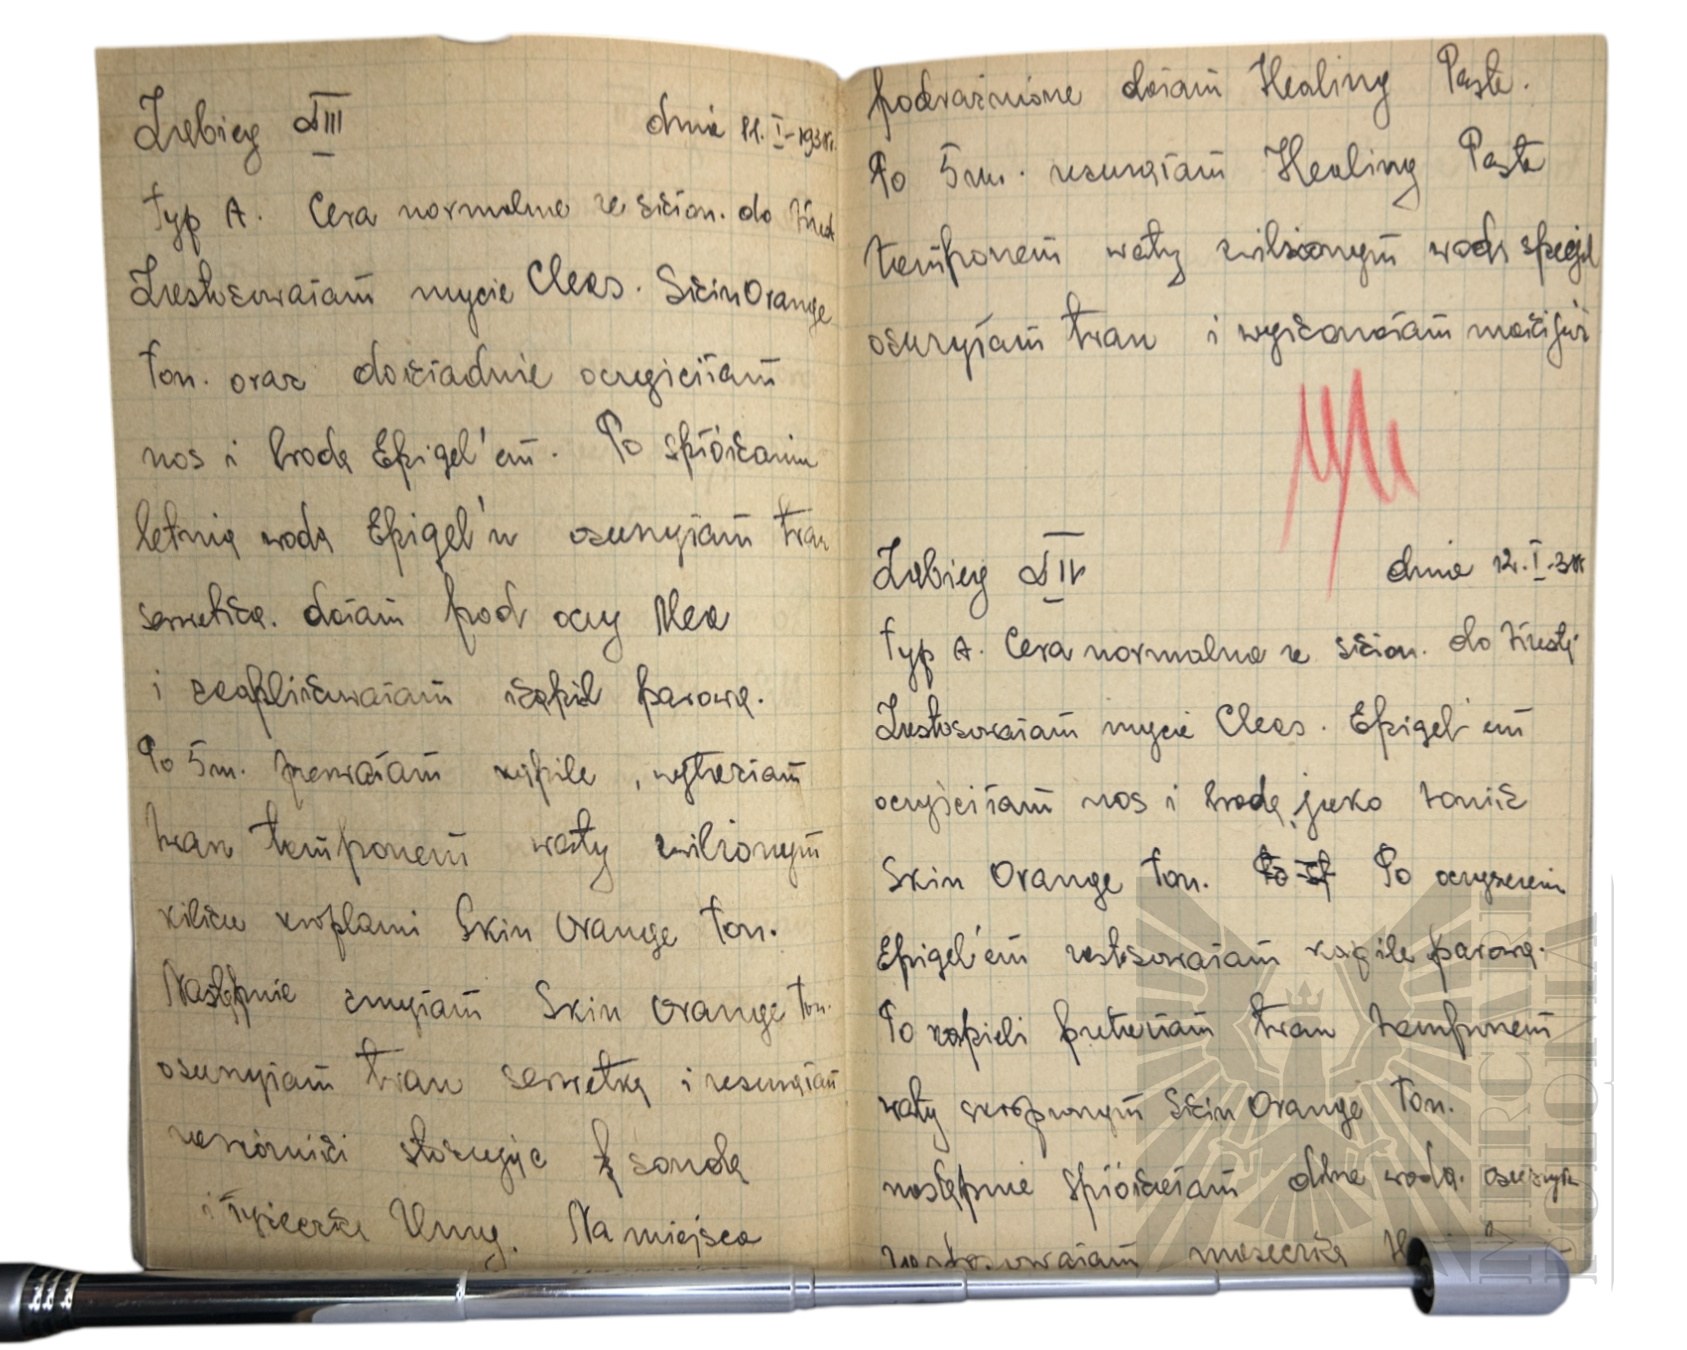 Zabieg LIII dnia 11.I-193
Typ A. Cera normalna ze skłon. do tłust
Zastosowałam mycie Cleas. Skin Orange
Ton. oraz dokładnie oczyściłam
nos i brodę Epigel'em. Po spłókaniu
letnią wodą Epigel'u osuszyłam twarz
serwetką. dałam pod oczy
i zaaplikowałam kąpiel parową.
Po 5m. przerwałam kąpiele, wytarłam
twarz tamponem waty zwilżonym
kilku kroplami Skin Orange Ton.
Następnie zmyłam Skin Orange Ton.
osuszyłam twarz serwetką i usunęłam
zaskórniki stosując sondę
i łyżeczkę Unny. Na miejsca
podrażnione dałam Healing Paste.
Po 5m. usunęłam Healing Paste
tamponem waty zwilżonym wodą
osuszyłam twarz i wykonałam makijaż
Zabieg LIV dnia 12.I.3
Typ A. Cera normalna z skłon. do tłustej
Zastosowałam mycie Cleas. Epigel'em
oczyściłam nos i brodę, jako tonik
Skin Orange Ton. Po oczyszczeniu
Epigel'em zastosowałam kąpiele parową.
Po kąpieli przetarłam twarz tamponem
waty skropionym Skin Orange Ton.
następnie spłókałam wodą.
zastosowałam maseczkę
MILITARIA POLONIA